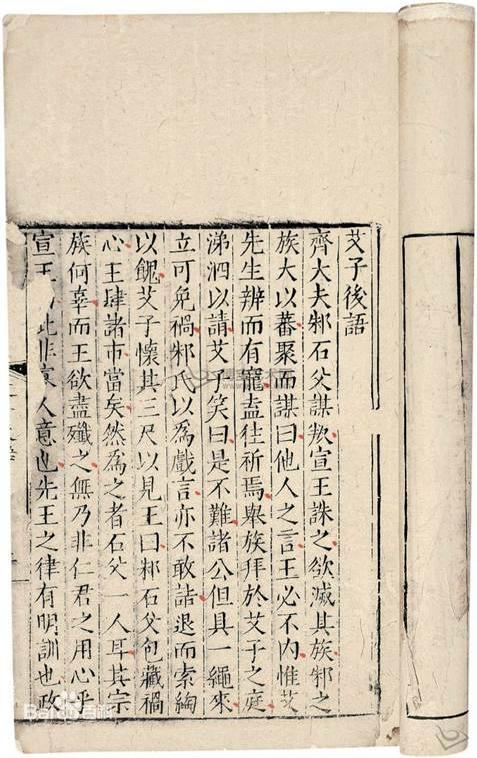 艾子後語
齊大夫邾石父謀叛宣王誅之欲滅其族邾之
族大以蕃聚而謀曰他人之言王必不內惟艾
先生辨而有寵盍徃祈焉舉族拜於艾子之庭
涕泗以請艾子笑曰是不難諸公但具一繩來
立可免禍邾氏以為戲言亦不敢詰退而索綯
以餽艾子懷其三尺以見王曰邾石父包藏禍
心王肆諸市當矣然為之者石父一人耳其宗
族何辜而王欲盡殲之無乃非仁君之用心乎
宣王此非寡人意也先王之律有明訓也政
Bai百科